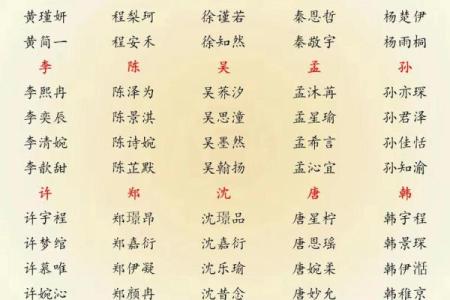 黄瑾妍 程梨珂 徐谨若 秦恩哲 杨楚伊
黄简一 程安禾 徐知然 秦敬宇 杨雨桐
李 陈 吴 孟 孙
李熙冉 陈泽为 吴荞汐 孟沐苒 孙亦琛
李奕辰 陈景淇 吴思潼 孟星瑜 孙君泽
李清婉 陈诗婉 吴墨然 孟希言 孙佳恬
李歆甜 陈芷默 吴翰扬 孟沁宜 孙知渝
许 郑 沈 唐 韩
许宇程 郑璟昂 沈璟品 唐星柠 韩宇程
许梦绾 郑嘉衍 沈嘉衍 唐恩瑶 韩景琛
许慕唯 郑伊凝 沈乐瑜 唐婉柔 韩伊沁
许婉沁 郑颜冉 沈昔念 唐妙允 韩稚京